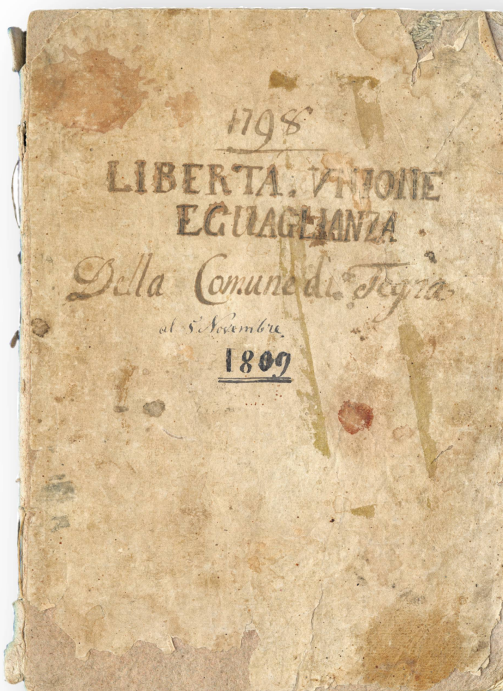 1798
LIBERTA. VNIONE
EGUAGLIANZA
Della Comune di Tegna
al 5 Novembre
1809